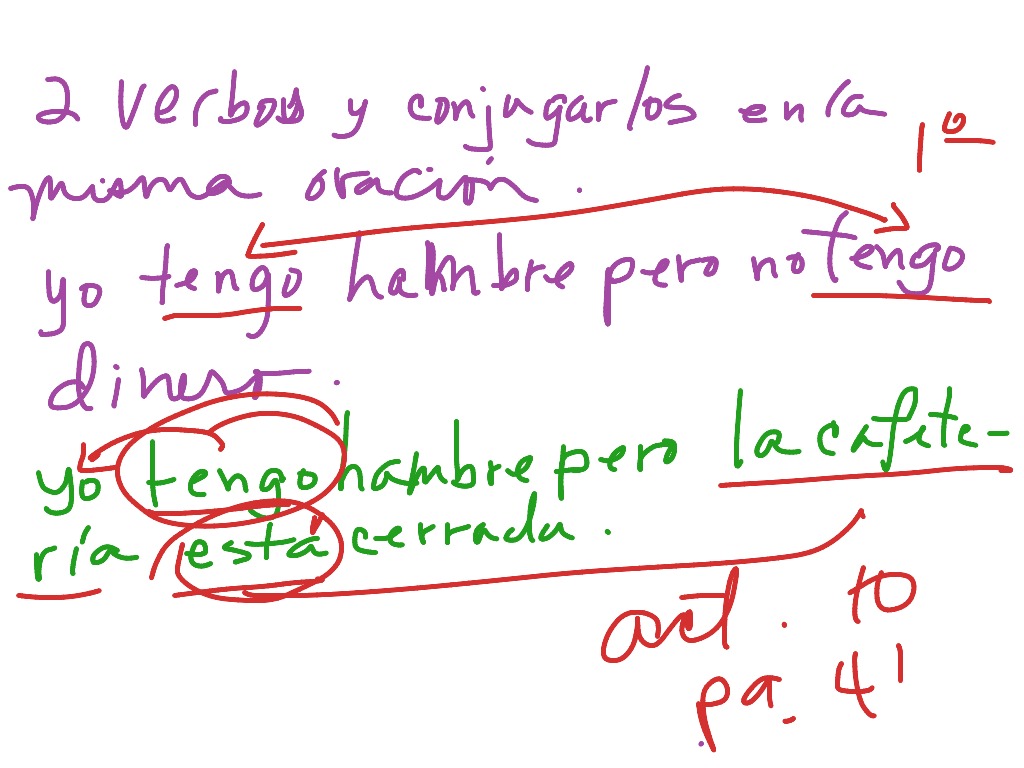 2 Verbos y conjugarlos en la
misma oración.
1º
yo tengo hambre pero no tengo
dinero.
yo tengo hambre pero la cafete-
ría está cerrada.
act. 10
pa. 41